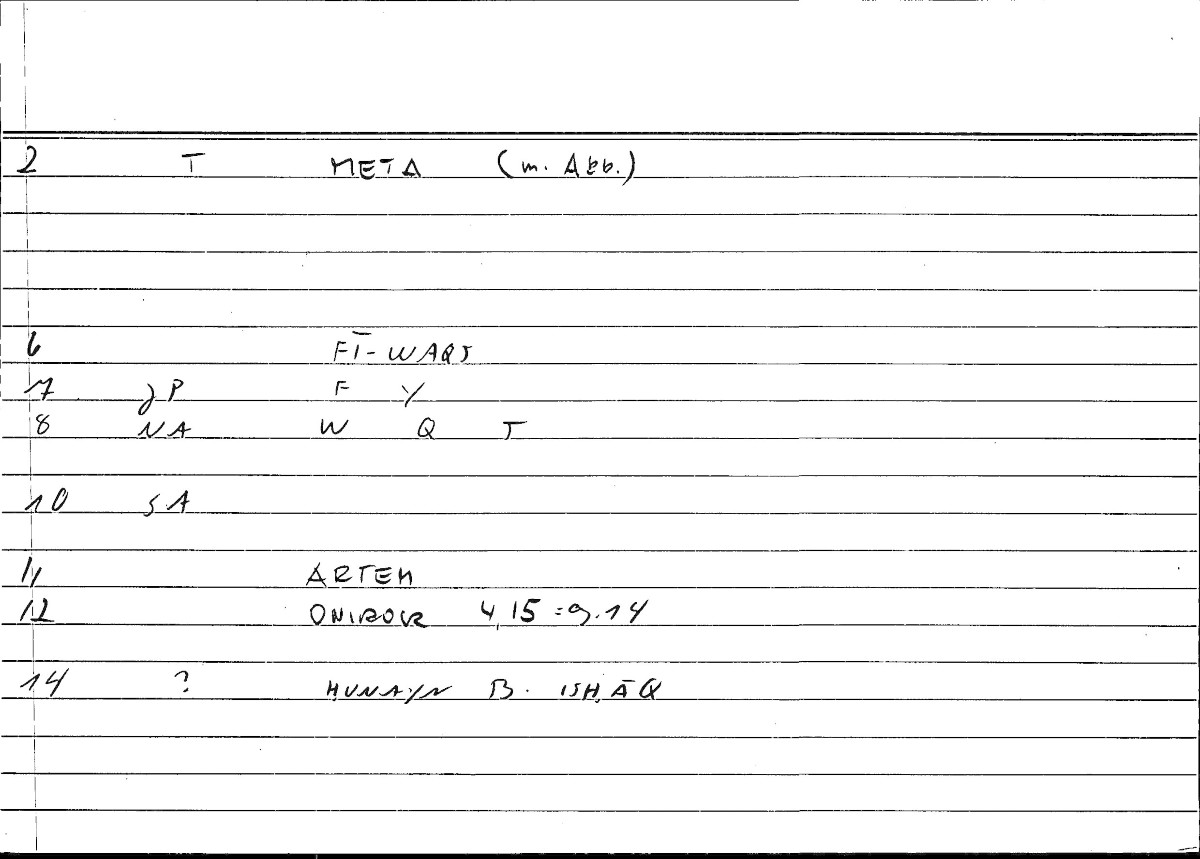 2 T META (m. Abb.)
6 FĪ-WAQT
7 P F Y
8 NA W Q T
10 SA
11 ARTEM
12 ONIROCR 4,15 = 9.14
14 ? ḤUNAYN B. ISḤĀQ